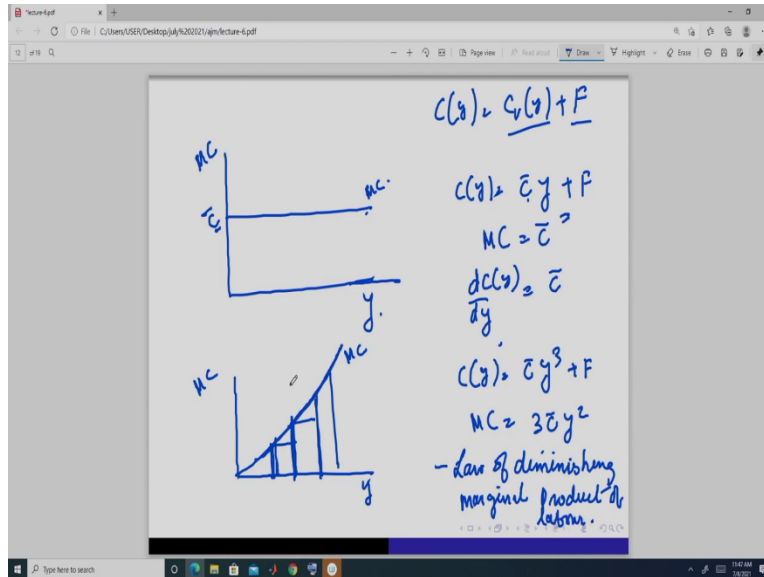 *lecture-6.pdf
File | C:/Users/USER/Desktop/july%202021/ajm/lecture-6.pdf
12 of 18
Page view | Read aloud | Draw Highlight Erase
C(y) = Cv(y) + F
MC
MC.
c̄
y.
C(y) = c̄ y + F
MC = c̄
dC(y)/dy = c̄
MC
MC
y
C(y) = c̄ y³ + F
MC = 3c̄y²
- Law of diminishing
marginal product of
labour.
Type here to search
11:47 AM
7/8/2021